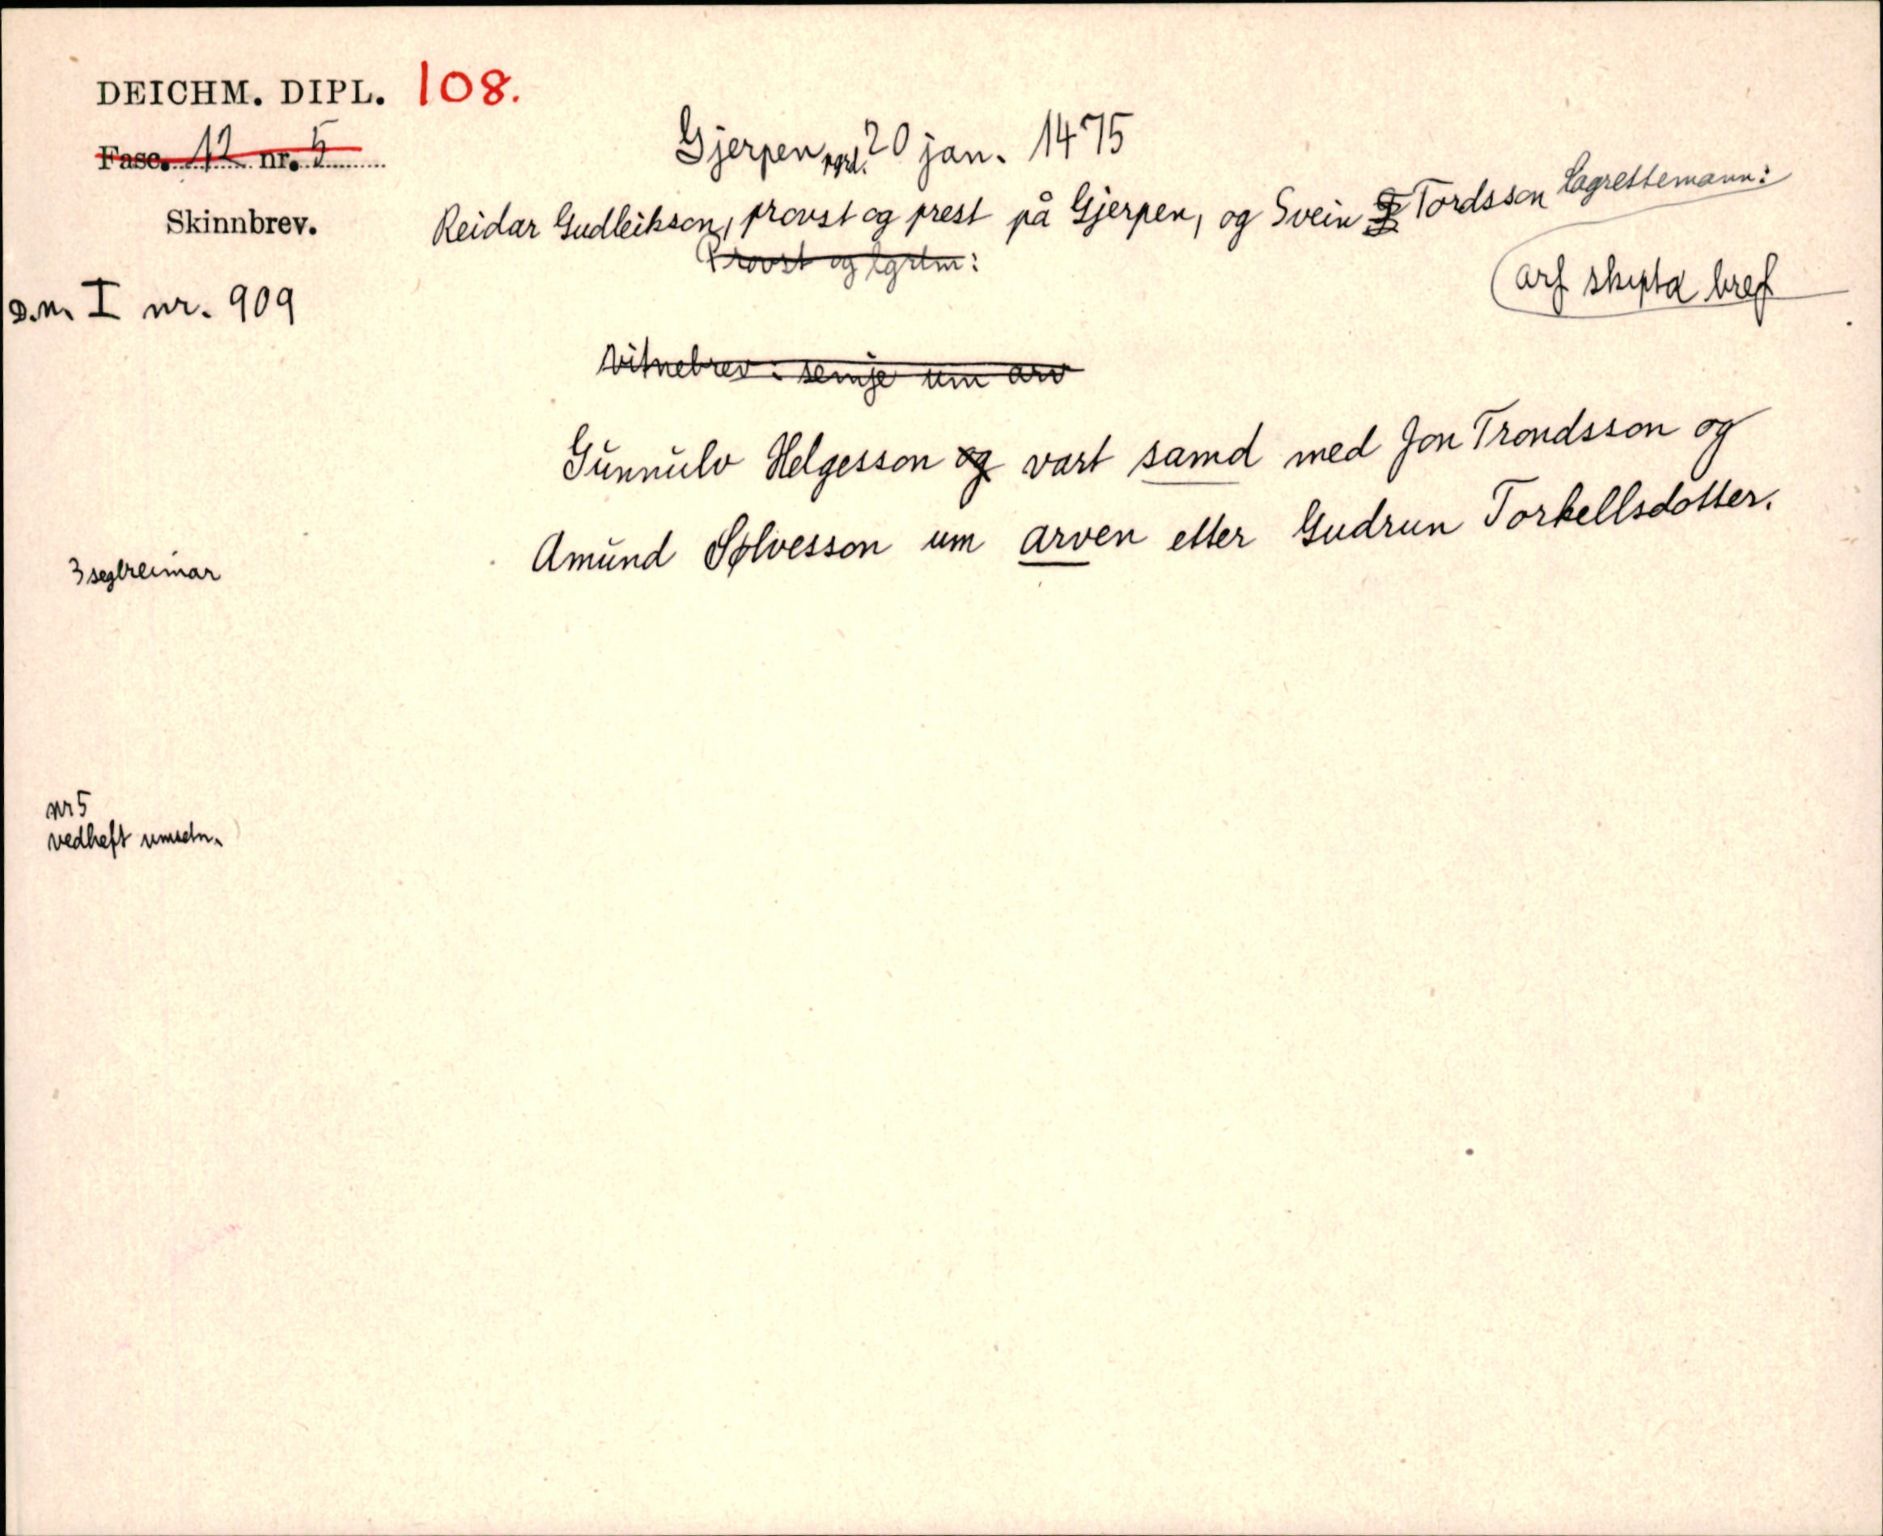 DEICHM. DIPL. 108.
Fasc. 12 nr. 5
Skinnbrev.
D.N. I nr. 909
Gjerpen prgd. 20 jan. 1475
Reidar Gudleikson, provst og prest på Gjerpen, og Svein Tordsson Lagrettemann:
Provst og lgrtm:
arf skipta bref
Vitnebrev: semje um arv
Gunnulv Helgesson og vart samd med Jon Trondsson og
Amund Sølvesson um arven etter Gudrun Torkellsdotter.
3 seglreimar
nr 5
vedheft umsetn.